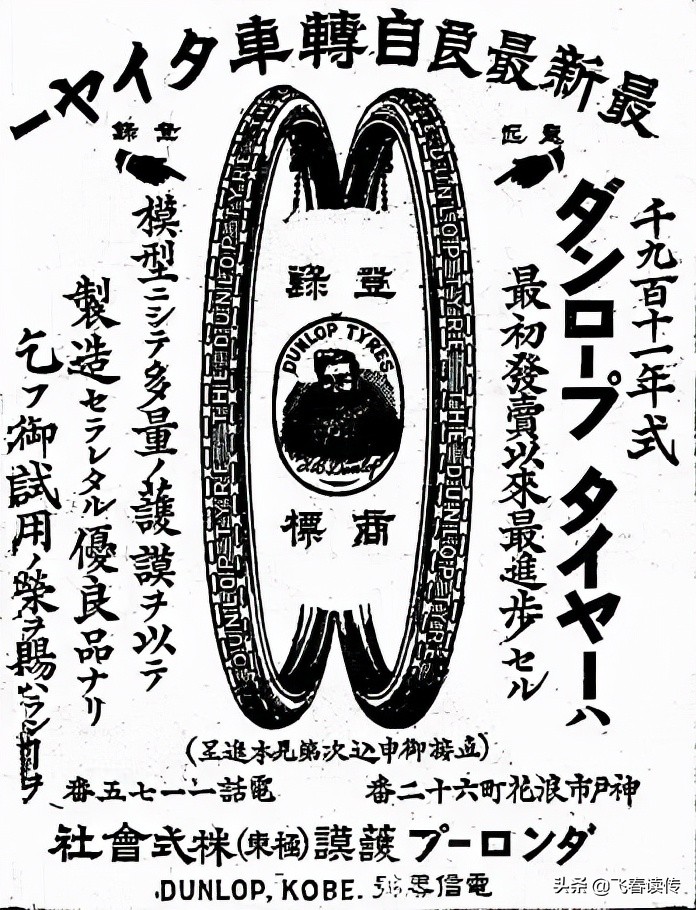 最新最良自轉車タイヤー
意匠
登錄
千九百十一年式
ダンロープ タイヤーハ
最初發賣以來最進步セル
登錄
DUNLOP TYRES
J.B. Dunlop
商標
THE DUNLOP TYRE
模型ニシテ多量ノ護謨ヲ以テ
製造セラレタル優良品ナリ
乞フ御試用ノ榮ヲ賜ハラン
(直接御申込次第見本進呈)
神戶市浪花町六十二番
電話一一七五番
ダンロープ護謨(極東)株式會社
電信
DUNLOP, KOBE.
头条 @飞春读传